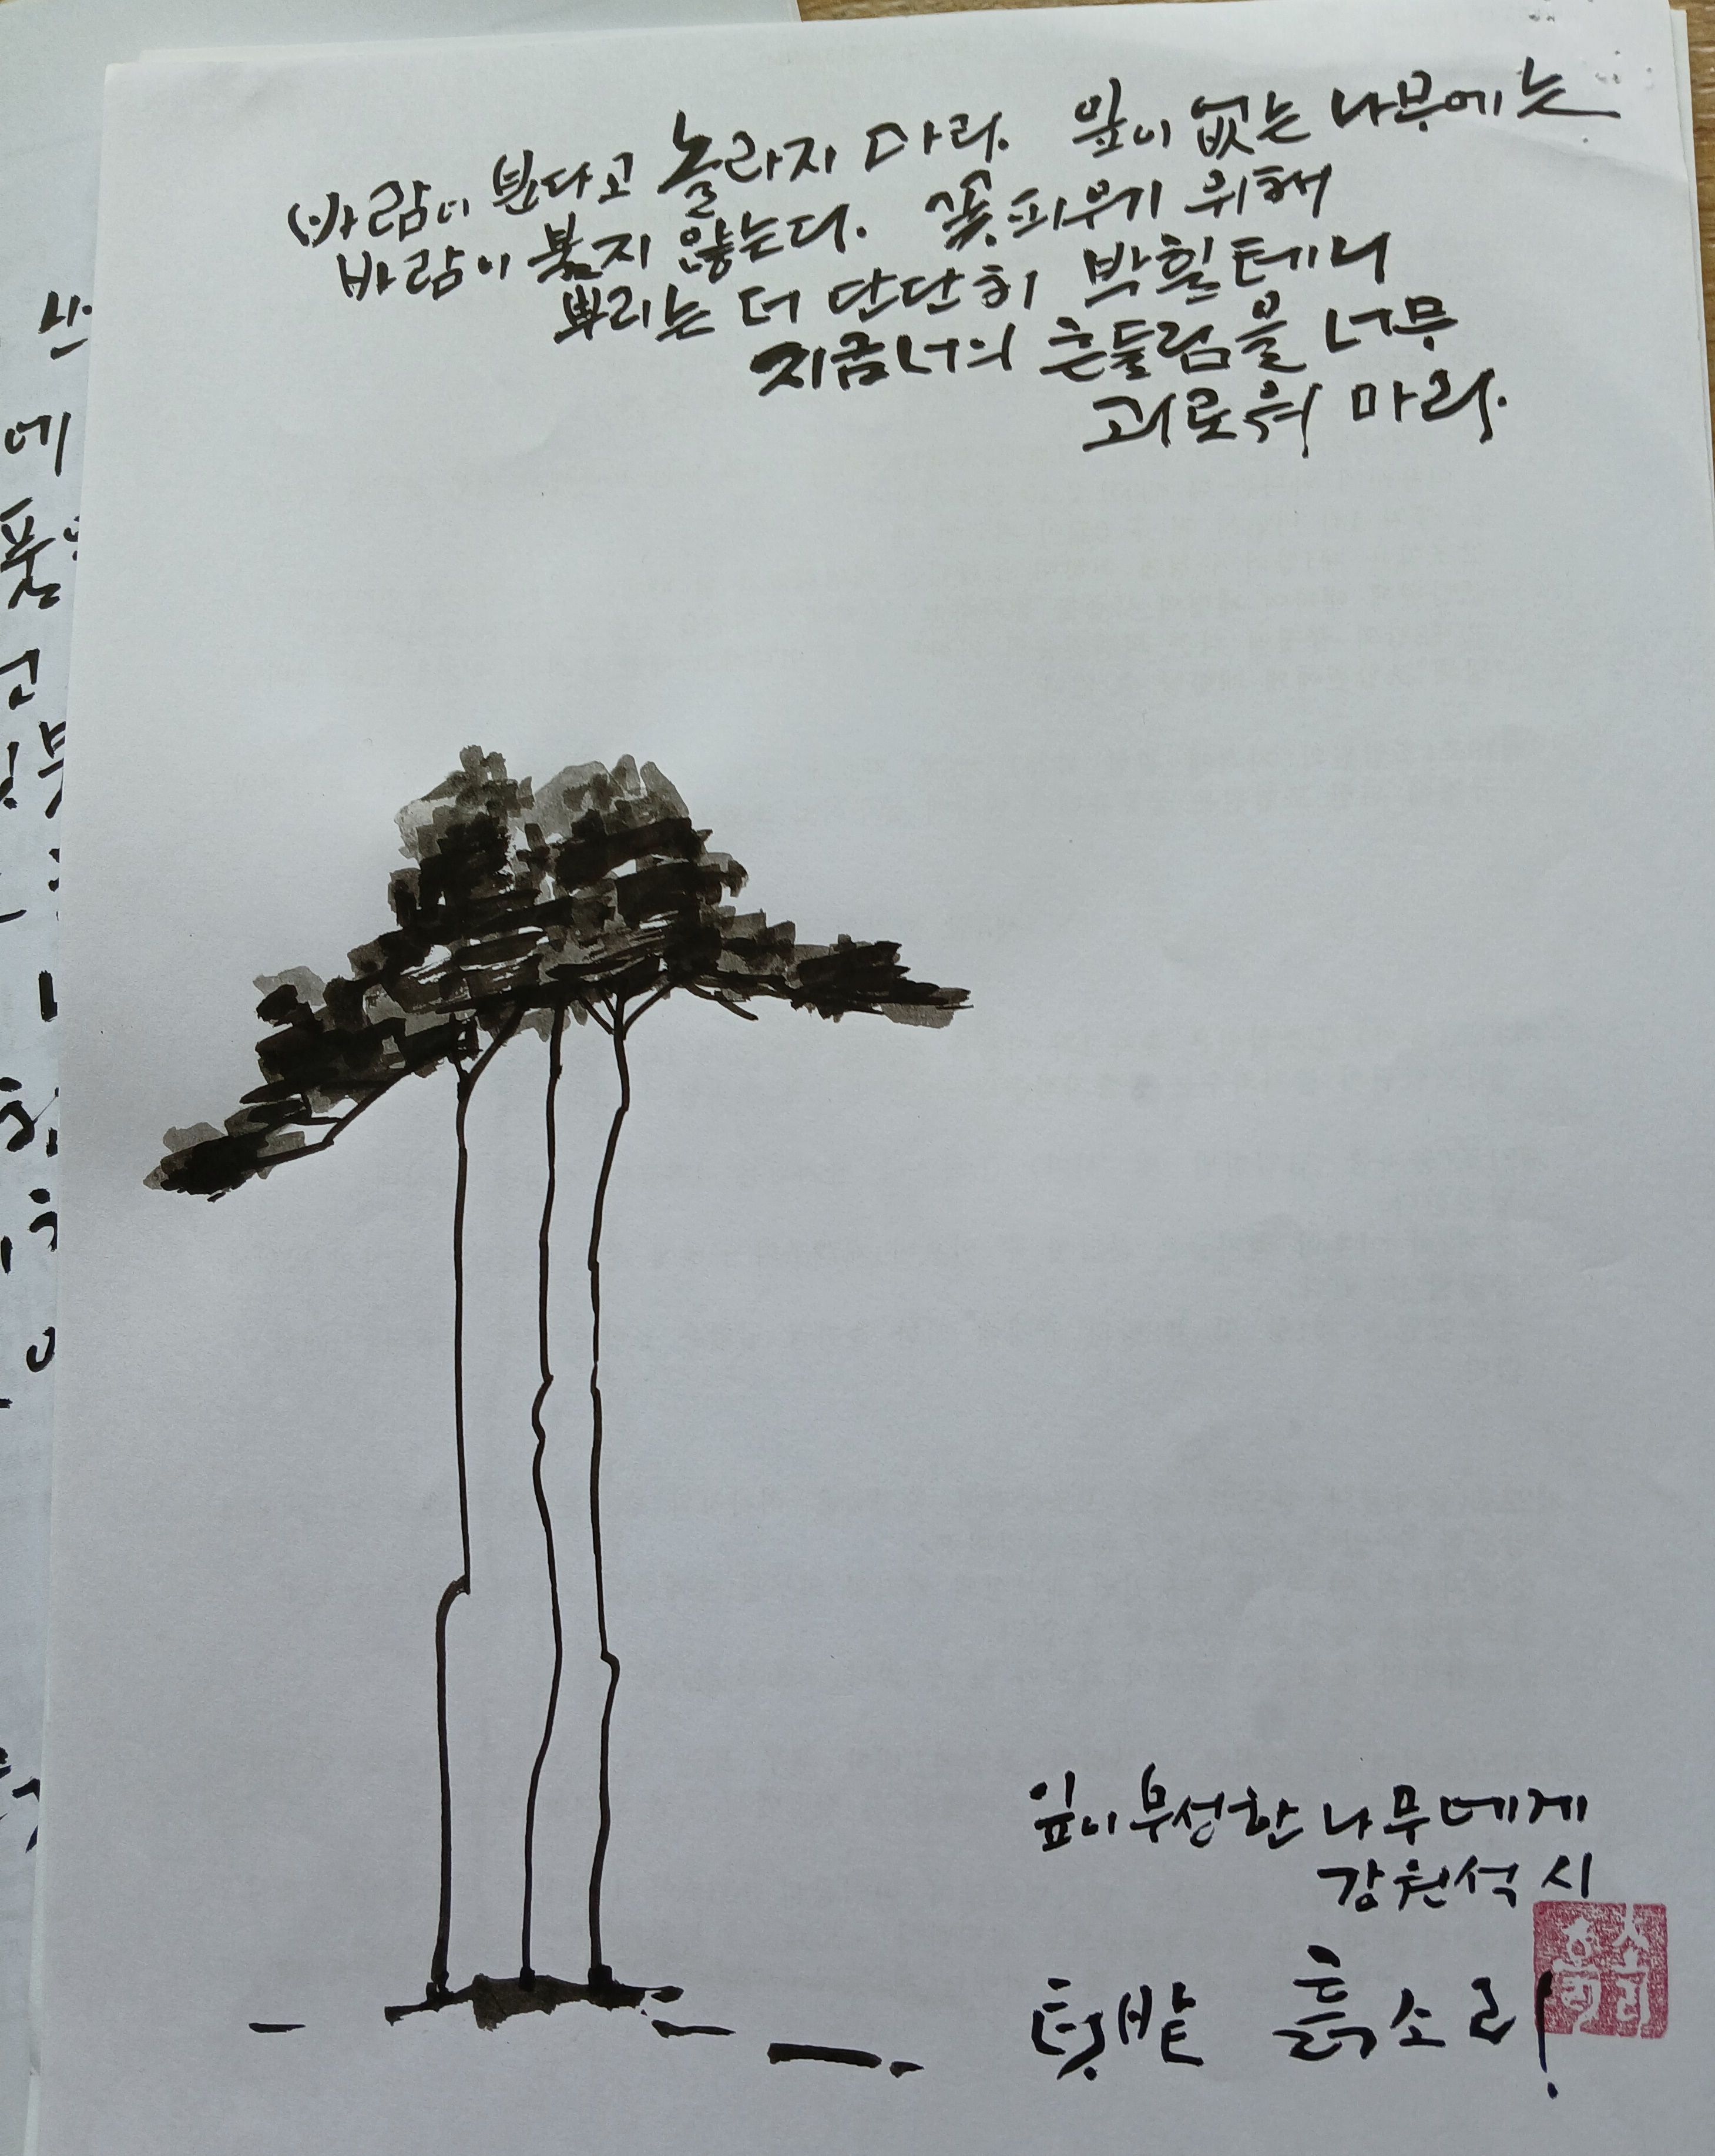 바람이 분다고 놀라지 마라. 잎이 없는 나무에는
바람이 불지 않는다. 꽃 피우기 위해
뿌리는 더 단단히 박힐 테니
지금 너의 흔들림을 너무
괴로워 마라.
잎이 무성한 나무에게
강원석 시
텃밭 흙소리
흙소리
에
고